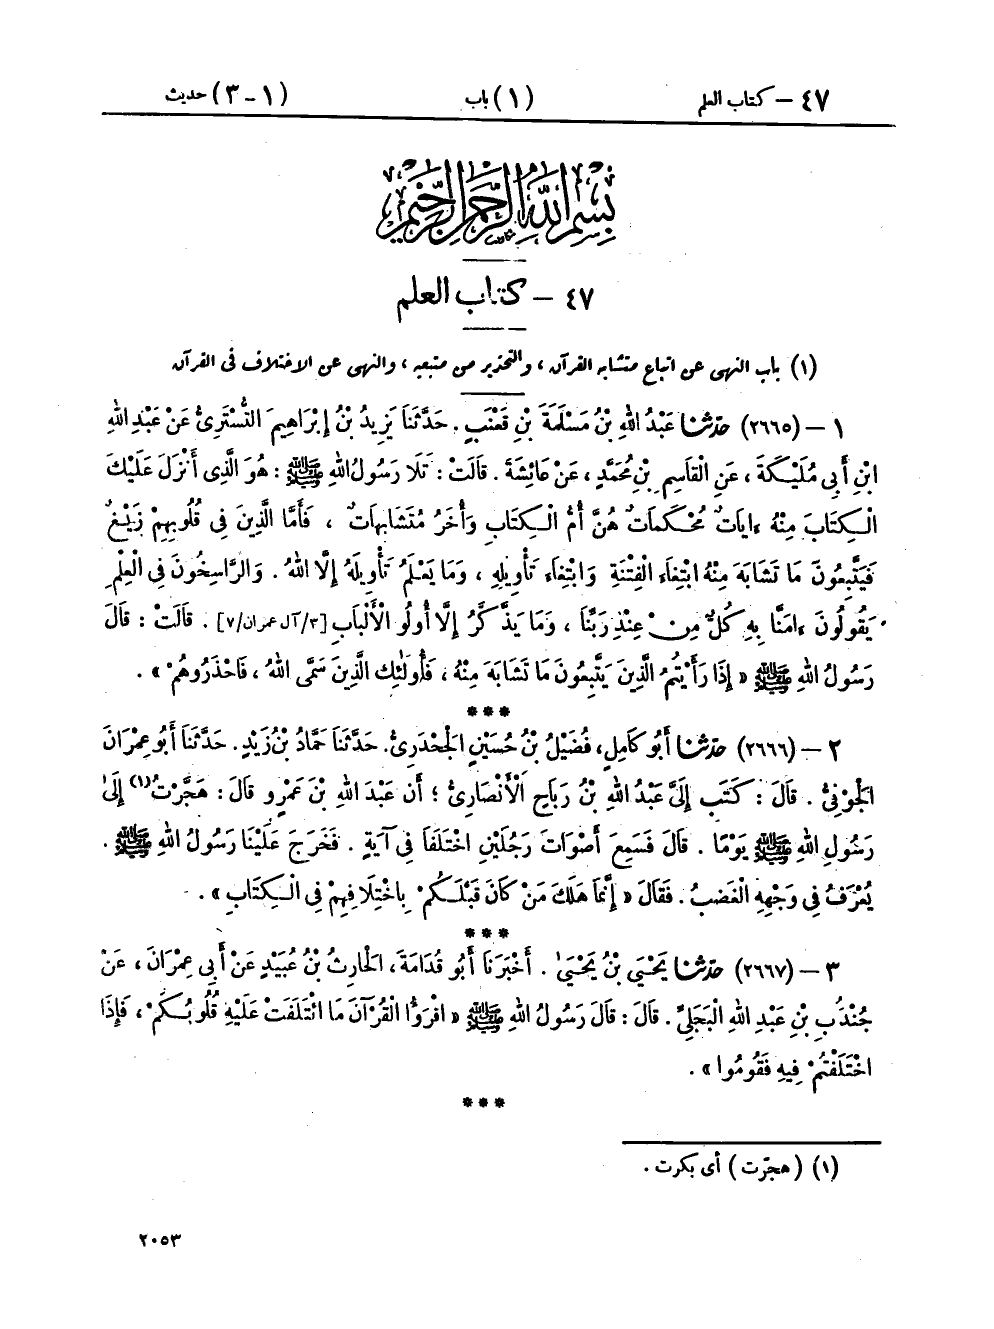 ٤٧ – كتاب العلم (١) باب (١ - ٣) حديث
بسم الله الرحمن الرحيم
٤٧ – كتاب العلم
(١) باب النهى عن اتباع متشابه القرآن ، والتحذير من متبعيه ، والنهى عن الاختلاف فى القرآن
١ – (٢٦٦٥) حدّثنا عَبْدُ اللهِ بْنُ مَسْلَمَةَ بْنِ قَعْنَبٍ . حَدَّثَنَا يَزِيدُ بْنُ إِبْرَاهِيمَ التُّسْتَرِىُّ عَنْ عَبْدِ اللهِ
ابْنِ أَبِى مُلَيْكَةَ ، عَنِ الْقَاسِمِ بْنِ مُحَمَّدٍ ، عَنْ عَائِشَةَ . قَالَتْ : تَلَا رَسُولُ اللهِ ﷺ : هُوَ الَّذِى أَنْزَلَ عَلَيْكَ
الْكِتَابَ مِنْهُ ءَايَاتٌ مُحْكَمَاتٌ هُنَّ أُمُّ الْكِتَابِ وَأُخَرُ مُتَشَابِهَاتٌ ، فَأَمَّا الَّذِينَ فِى قُلُوبِهِمْ زَيْغٌ
فَيَتَّبِعُونَ مَا تَشَابَهَ مِنْهُ ابْتِغَاءَ الْفِتْنَةِ وَابْتِغَاءَ تَأْوِيلِهِ ، وَمَا يَعْلَمُ تَأْوِيلَهُ إِلَّا اللهُ . وَالرَّاسِخُونَ فِى الْعِلْمِ
يَقُولُونَ ءَامَنَّا بِهِ كُلٌّ مِنْ عِنْدِ رَبِّنَا ، وَمَا يَذَّكَّرُ إِلَّا أُولُو الْأَلْبَابِ [٣/آل عمران/٧] . قَالَتْ : قَالَ
رَسُولُ اللهِ ﷺ « إِذَا رَأَيْتُمُ الَّذِينَ يَتَّبِعُونَ مَا تَشَابَهَ مِنْهُ ، فَأُولَئِكَ الَّذِينَ سَمَّى اللهُ ، فَاحْذَرُوهُمْ » .
***
٢ – (٢٦٦٦) حدّثنا أَبُو كَامِلٍ، فُضَيْلُ بْنُ حُسَيْنٍ الْجَحْدَرِىُّ. حَدَّثَنَا حَمَّادُ بْنُ زَيْدٍ. حَدَّثَنَا أَبُو عِمْرَانَ
الْجَوْنِىُّ . قَالَ : كَتَبَ إِلَىَّ عَبْدُ اللهِ بْنُ رَبَاحٍ الْأَنْصَارِىُّ ؛ أَنَّ عَبْدَ اللهِ بْنَ عَمْرٍو قَالَ : هَجَّرْتُ(١) إِلَىٰ
رَسُولِ اللهِ ﷺ يَوْمًا . قَالَ فَسَمِعَ أَصْوَاتَ رَجُلَيْنِ اخْتَلَفَا فِى آيَةٍ . فَخَرَجَ عَلَيْنَا رَسُولُ اللهِ ﷺ .
يُعْرَفُ فِى وَجْهِهِ الْغَضَبُ . فَقَالَ « إِنَّمَا هَلَكَ مَنْ كَانَ قَبْلَكُمْ بِاخْتِلَافِهِمْ فِى الْكِتَابِ » .
***
٣ – (٢٦٦٧) حدّثنا يَحْيَىٰ بْنُ يَحْيَىٰ . أَخْبَرَنَا أَبُو قُدَامَةَ، الْحَارِثُ بْنُ عُبَيْدٍ عَنْ أَبِى عِمْرَانَ ، عَنْ
جُنْدَبِ بْنِ عَبْدِ اللهِ الْبَجَلِىِّ . قَالَ : قَالَ رَسُولُ اللهِ ﷺ « اقْرَؤُا الْقُرْآنَ مَا ائْتَلَفَتْ عَلَيْهِ قُلُوبُكُمْ ، فَإِذَا
اخْتَلَفْتُمْ فِيهِ فَقُومُوا » .
***
(١) (هجّرت) أى بكرت .
٢٠٥٣